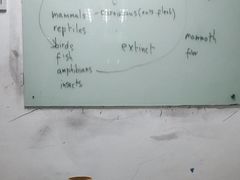 mammals - carnivorous (eats flesh)
reptiles
birds
fish
amphibians
insects
extinct
mammoth